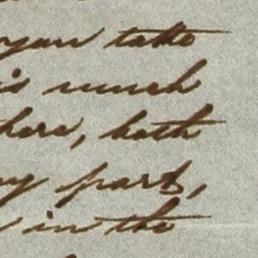 you take
is much
there, both
my part,
in the